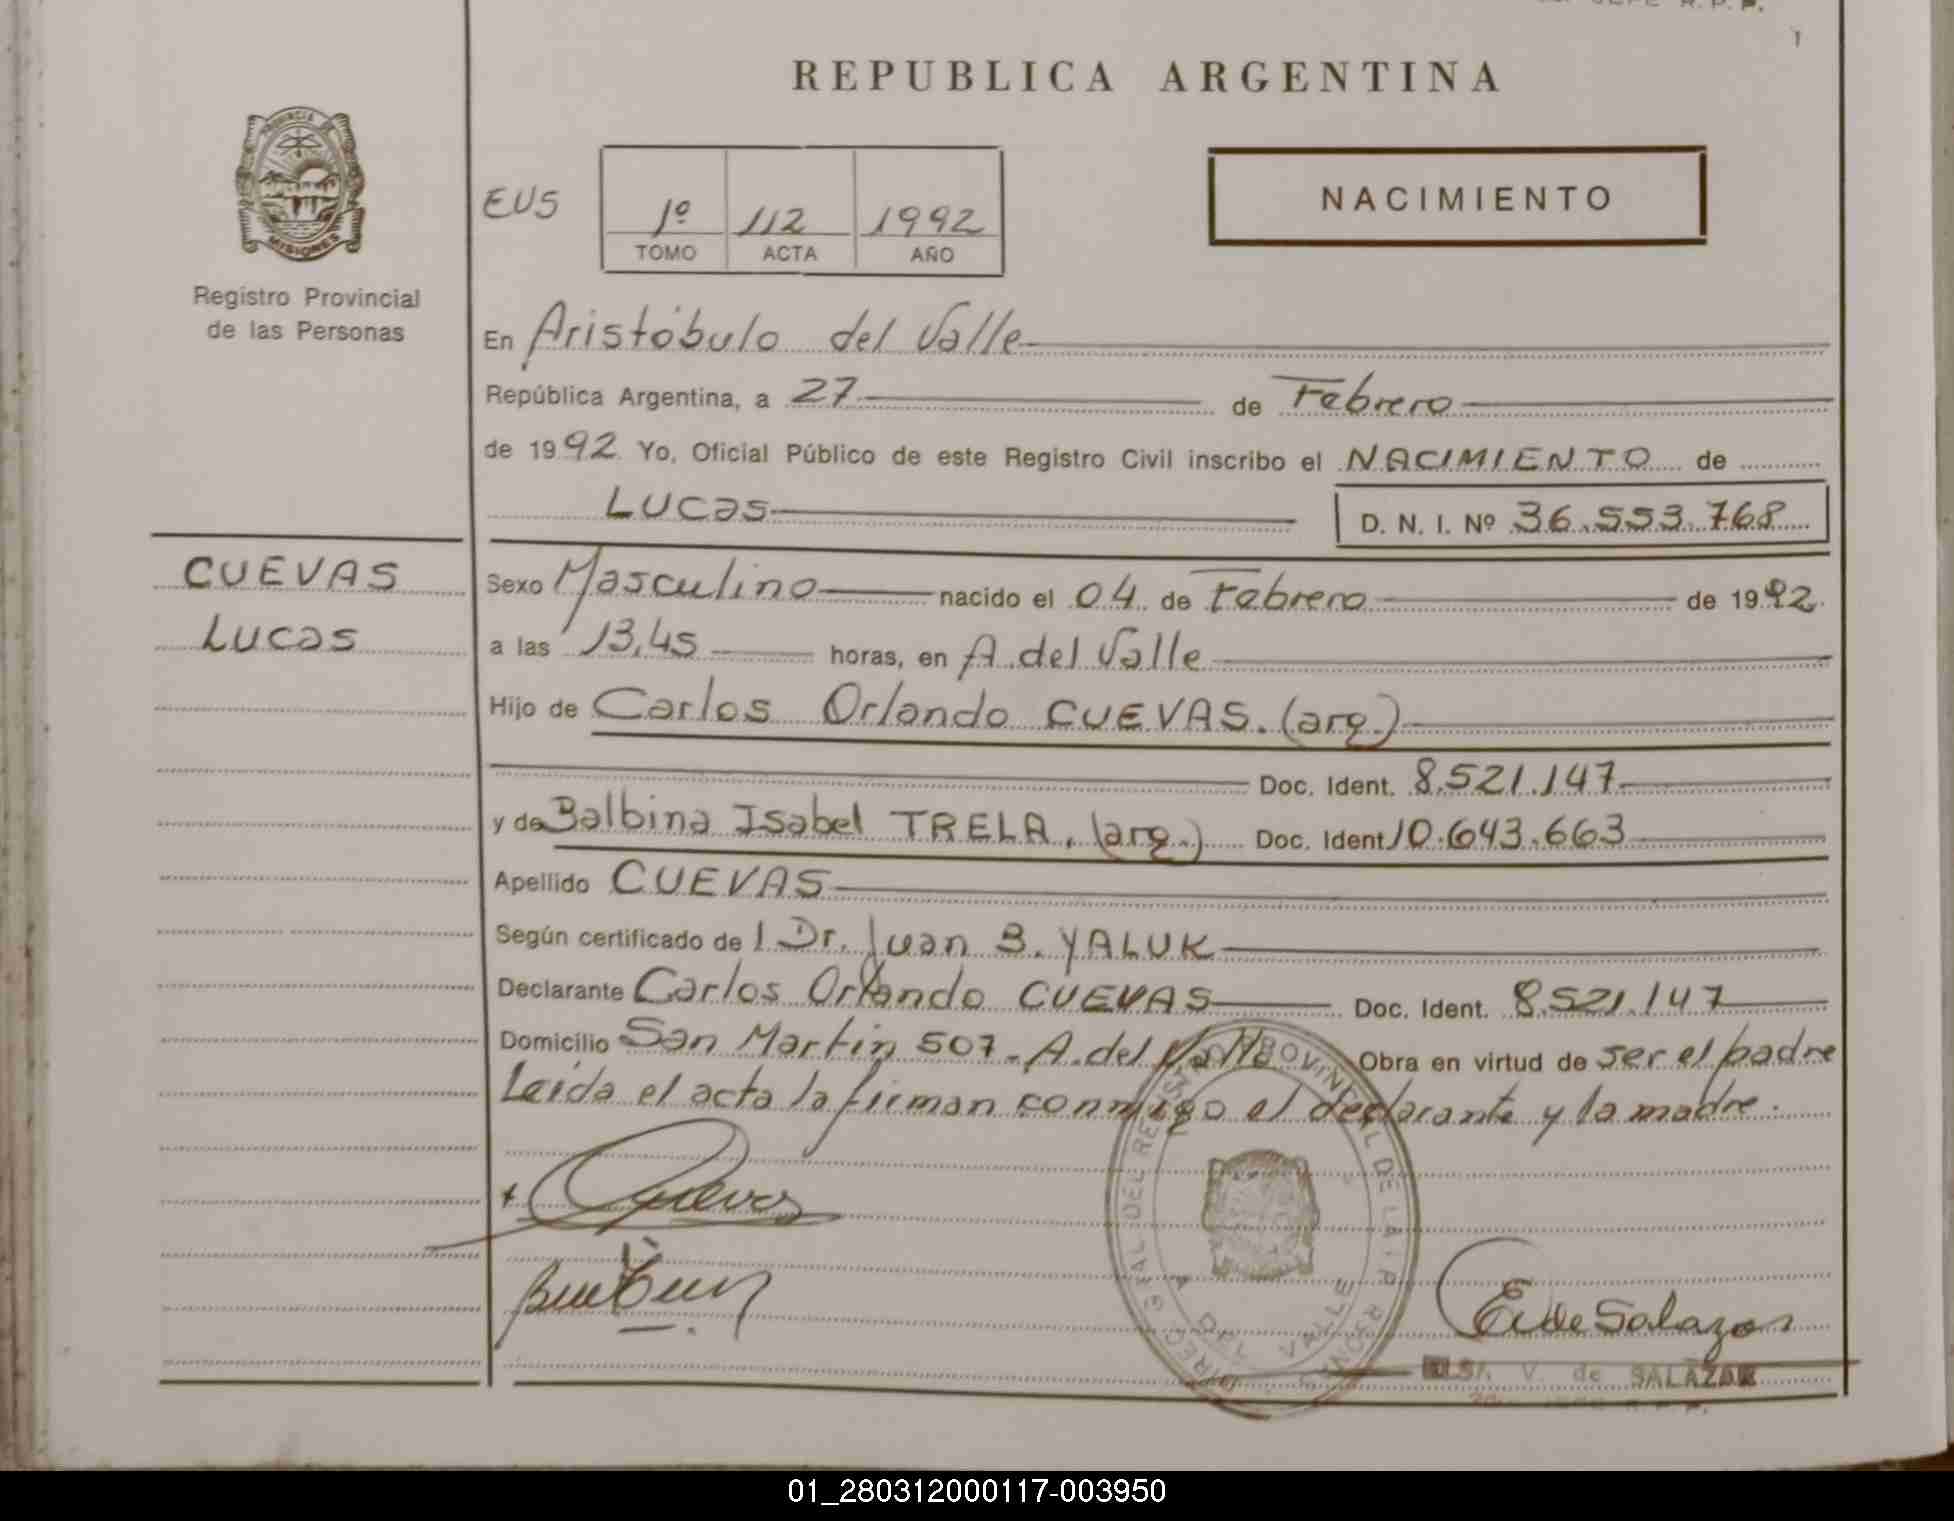 R.P.P.
REPUBLICA ARGENTINA
PROVINCIA DE
MISIONES
Registro Provincial
de las Personas
EUS
1º 112 1992
TOMO ACTA AÑO
NACIMIENTO
En Aristóbulo del Valle
República Argentina, a 27 de Febrero
de 1992 Yo, Oficial Público de este Registro Civil inscribo el NACIMIENTO de
Lucas D. N. I. Nº 36.553.768
CUEVAS
Lucas
Sexo Masculino nacido el 04 de Febrero de 1992
a las 13,45 horas, en A. del Valle
Hijo de Carlos Orlando CUEVAS. (arg.)
Doc. Ident. 8.521.147
y de Balbina Isabel TRELA. (arg.) Doc. Ident 10.643.663
Apellido CUEVAS
Según certificado de l Dr. Juan B. YALUK
Declarante Carlos Orlando CUEVAS Doc. Ident. 8.521.147
Domicilio San Martin 507-A.del Valle Obra en virtud de ser el padre
Leída el acta la firman conmigo el declarante y la madre.
Cuevas
E de Salazar
V. de SALAZAR
01_280312000117-003950